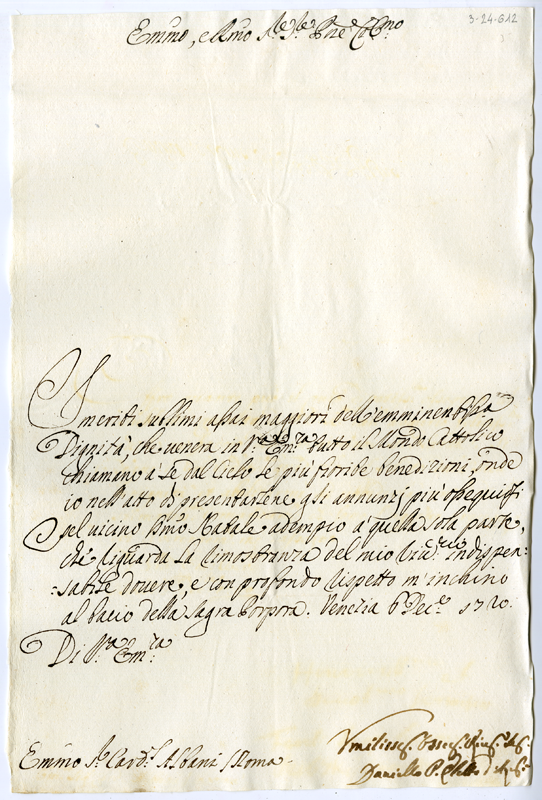 3-24-612
Emin̄o, e Rmo Sig.r Sig.r Pne Col.mo
I meriti sublimi assai maggiori dell'emminentissa
Dignità, che venera in V.a Em.za tutto il Mondo Cattolico
chiamano à se dal Cielo le più fiorite benedizioni, onde
io nell'atto di presentarene gli annunzj più ossequissi
pel vicino Smo Natale adempio a quella sola parte,
che riguarda la rimostranza del mio indispen=
=sabile dovere, e con profondo rispetto m'inchino
al bacio della Sagra Porpora. Venezia 6 Dec.e 1720.
Di V.a Em.za
Emin̄o S.r Card.l Albani / Roma.
Umiliss.
Daniello